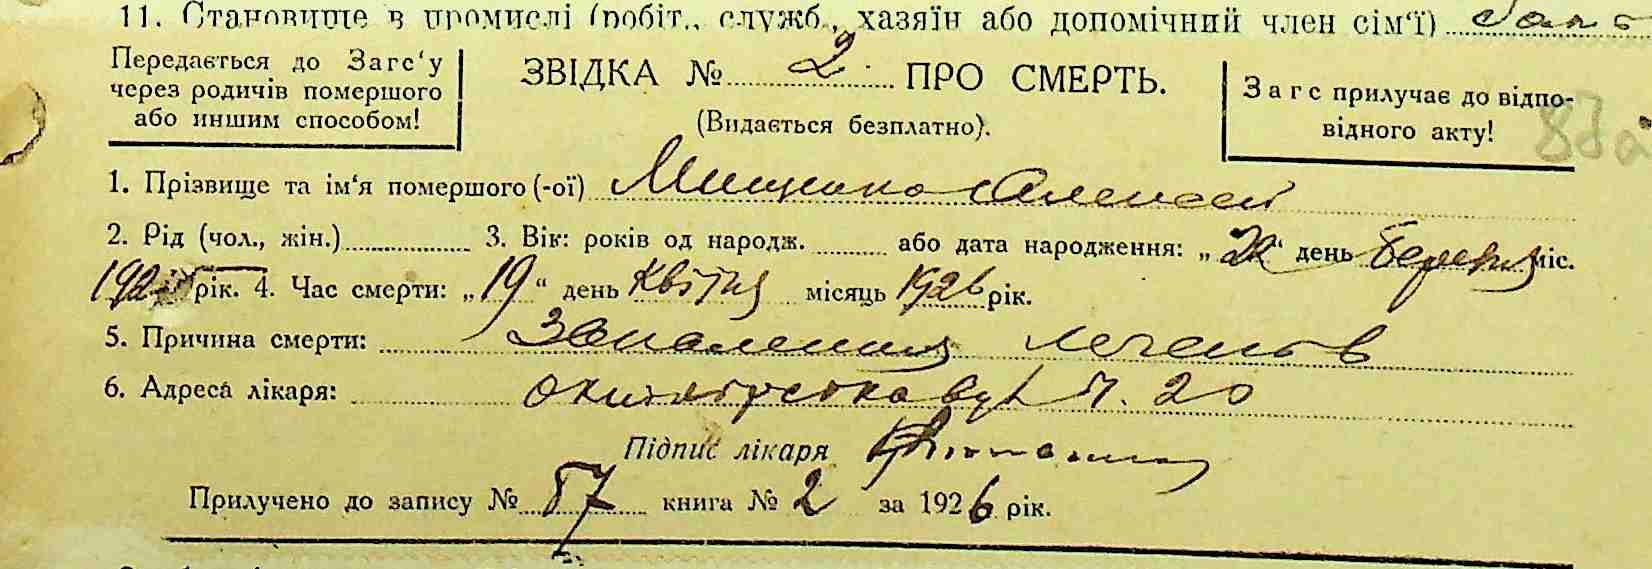 11. Становище в промислі (робіт., служб., хазяїн або допомічний член сім‘ї)
Передається до Загс‘у
через родичів помершого
або иншим способом!
ЗВІДКА № 2 ПРО СМЕРТЬ.
(Видається безплатно).
Загс прилучає до відпо-
відного акту!
1. Прізвище та ім‘я помершого (-ої) Мищенко Алексей
2. Рід (чол., жін.) 3. Вік: років од народж. або дата народження: „ “ день березня міс.
рік. 4. Час смерти: „19“ день квітня місяць 1926 рік.
5. Причина смерти: Запалення легенів
6. Адреса лікаря: вул. 20
Підпис лікаря
Прилучено до запису № 87 книга № 2 за 1926 рік.